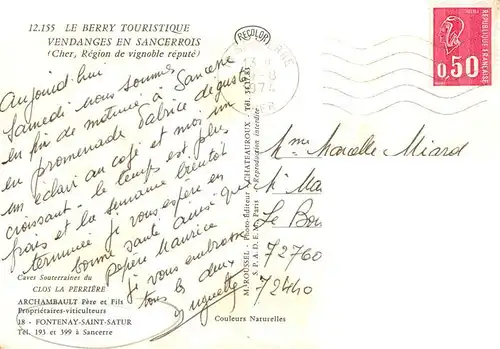 12.155 LE BERRY TOURISTIQUE
VENDANGES EN SANCERROIS
(Cher, Région de vignoble réputé)
Aujourd'hui
Samedi nous sommes
en fin de matinée à Sancerre
en promenade Fabrice déguste
un éclair au café et moi un
croissant - le temps est plus
frais et la semaine bientôt
terminée je vous espère en
bonne santé ainsi que
pépère Maurice
je vous embrasse
tous les deux
Huguette
Caves Souterraines du
CLOS LA PERRIÈRE
ARCHAMBAULT Père et Fils
Propriétaires-viticulteurs
18 - FONTENAY-SAINT-SATUR
Tél. 193 et 399 à Sancerre
Couleurs Naturelles
M. ROUSSEL - Photo-Éditeur - CHATEAUROUX - Tél.
S.P.A.D.E.M. Paris - Reproduction interdite
RECOLOR
1974
REPUBLIQUE FRANÇAISE
0,50
Mme Marcelle Miard
72760
72440